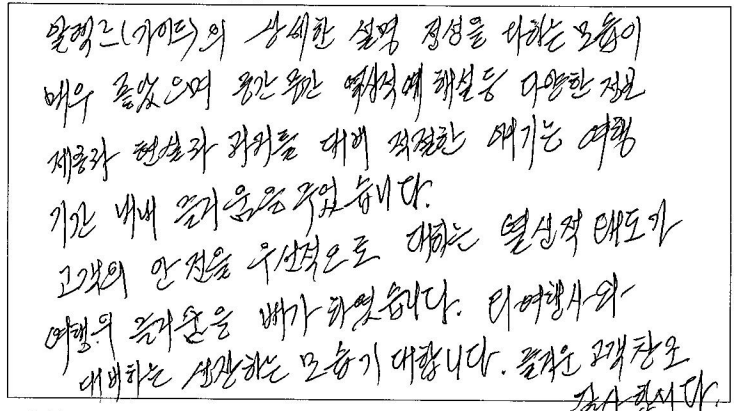 알렉스(가이드)의 상세한 설명 정성을 다하는 모습이
매우 좋았으며 중간중간 역사적예 해설등 다양한 정보
제공과 현실과 과거를 대비 적절한 얘기는 여행
기간 내내 즐거움을 주었습니다.
고객의 안전을 우선적으로 대하는 열심적 태도가
여행의 즐거움을 배가 하였습니다. 타여행사와
대비하는 성장하는 모습 기대합니다. 즐거운 고객창조
감사합니다.